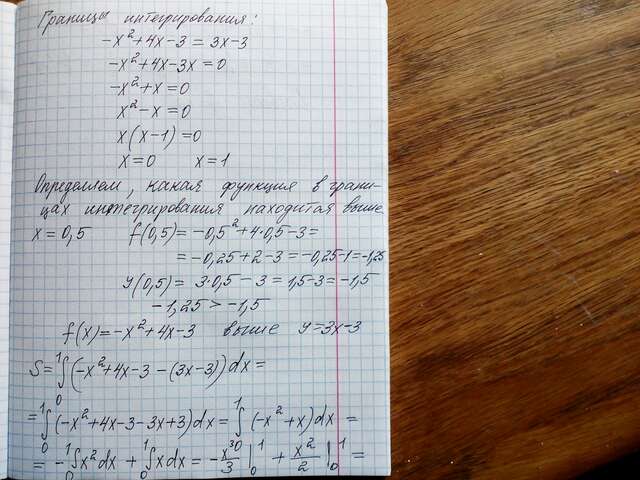 Границы интегрирования:
-x²+4x-3 = 3x-3
-x²+4x-3x = 0
-x²+x = 0
x²-x = 0
x(x-1) = 0
x=0 x=1
Определяем, какая функция в грани-
цах интегрирования находится выше
x = 0,5 f(0,5) = -0,5²+4·0,5-3 =
= -0,25+2-3 = -0,25-1 = -1,25
y(0,5) = 3·0,5 - 3 = 1,5-3 = -1,5
-1,25 > -1,5
f(x) = -x²+4x-3 выше y=3x-3
S = ∫₀¹(-x²+4x-3 - (3x-3))dx =
= ∫₀¹(-x²+4x-3-3x+3)dx = ∫₀¹(-x²+x)dx =
= -∫₀¹x²dx + ∫₀¹xdx = -x³/3 |₀¹ + x²/2 |₀¹ =